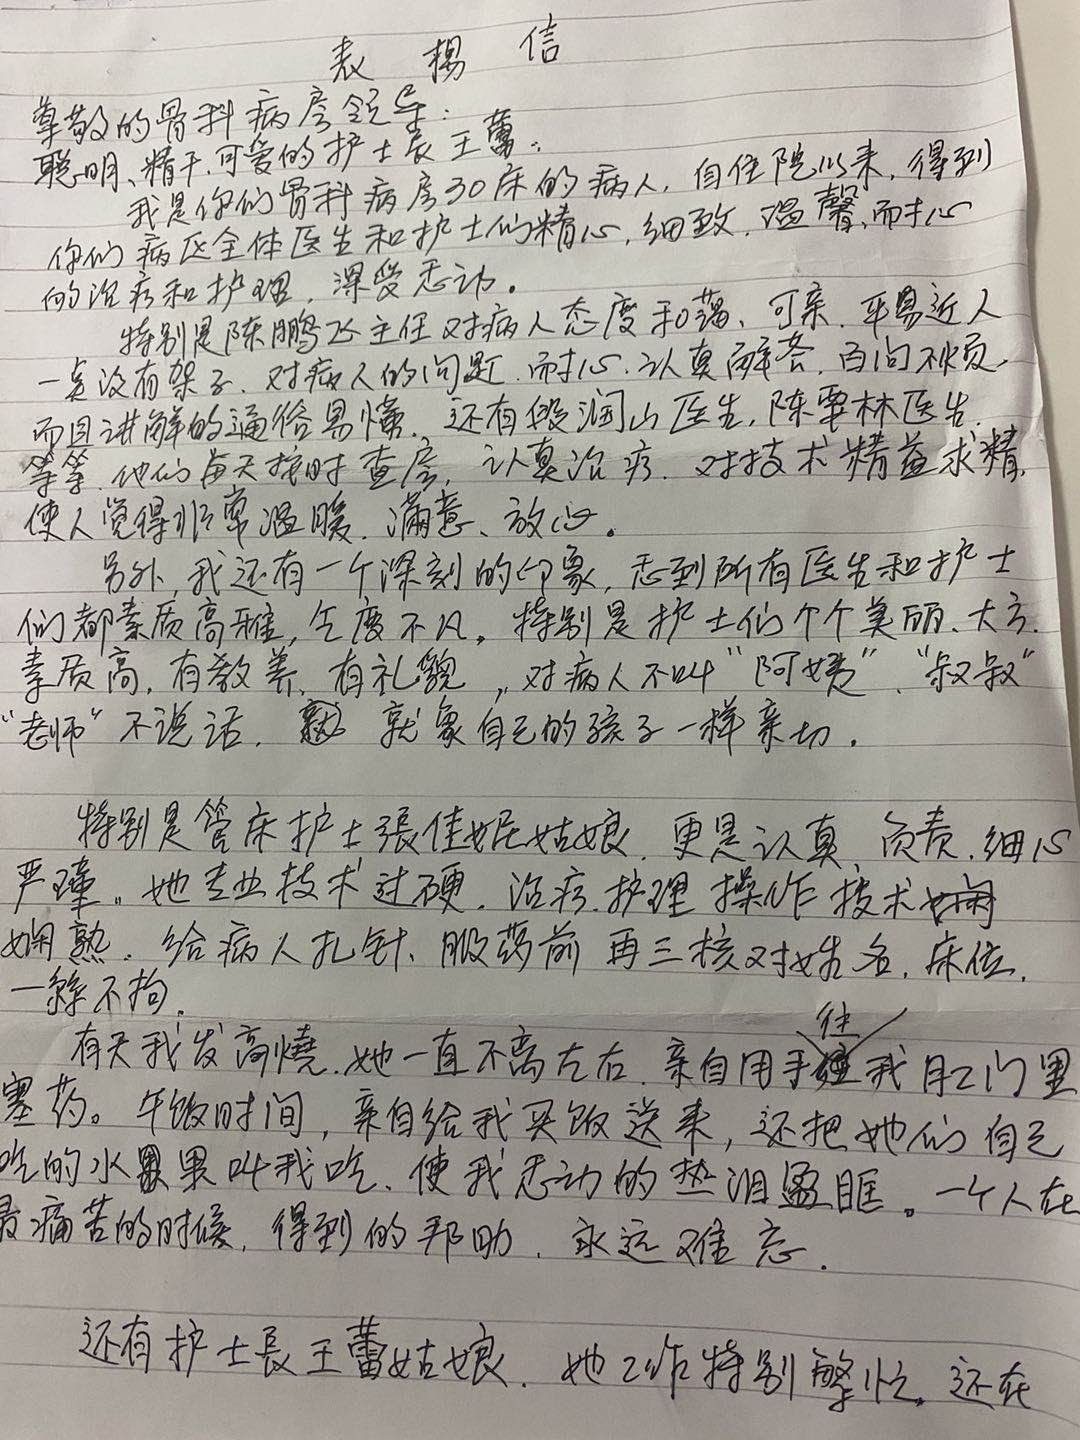 表扬信
尊敬的骨科病房领导:
聪明、精干、可爱的护士长王蕾:
我是你们骨科病房30床的病人,自住院以来,得到
你们病区全体医生和护士们精心,细致,温馨,耐心
的治疗和护理,深受感动。
特别是陈鹏飞主任对病人态度和蔼、可亲、平易近人
一点没有架子,对病人的问题,耐心、认真解答,百问不烦,
而且讲解的通俗易懂。还有段润山医生,陈栗林医生,
等等,他们每天按时查房,认真治疗,对技术精益求精,
使人觉得非常温暖、满意、放心。
另外,我还有一个深刻的印象,感到所有医生和护士
们都素质高雅,气度不凡。特别是护士们个个美丽、大方、
素质高,有教养,有礼貌,对病人不叫“阿姨”、“叔叔”
“老师”不说话,就象自己的孩子一样亲切。
特别是管床护士張佳妮姑娘,更是认真、负责、细心
严瑾。她专业技术过硬,治疗、护理操作技术
娴熟。给病人扎针、服药前再三核对姓名,床位,
一丝不拘。
有天我发高燒,她一直不离左右,亲自用手往我肛门里
塞药。午饭时间,亲自给我买饭送来,还把她们自己
吃的水果叫我吃,使我感动的热泪盈眶。一个人在
最痛苦的时候,得到的邦助,永远难忘。
还有护士長王蕾姑娘,她工作特别繁忙,还在